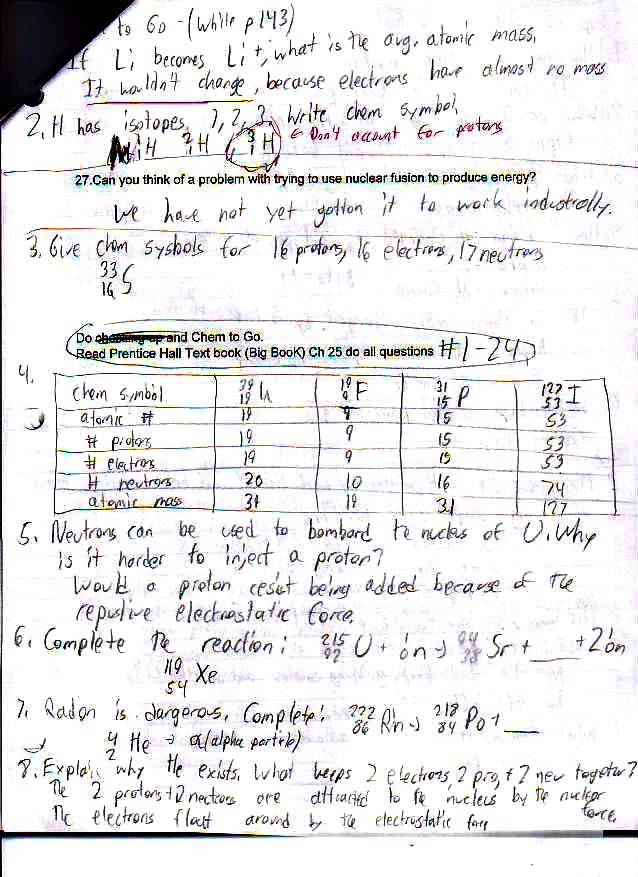 to Go - (while p 143)
If Li becomes Li+, what is the avg. atomic mass.
It wouldn't change, because electrons have almost no mass
2. H has isotopes 1, 2, 3. Write chem symbol.
1 1 H 2 1 H 3 1 H ← Don't account for protons
27.Can you think of a problem with trying to use nuclear fusion to produce energy?
We have not yet gotton it to work industrolly.
3. Give chem sysbols for 16 protons, 16 electrons, 17 neutrons
33 16 S
Do and Chem to Go.
Read Prentice Hall Text book (Big BooK) Ch 25 do all questions #1-24
4.
chem symbol 39 19 K 19 9 F 31 15 P 127 53 I
atomic # 19 9 15 53
# protons 19 9 15 53
# electrons 19 9 15 53
# neutrons 20 10 16 74
atomic mass 39 19 31 127
5. Neutrons can be used to bombard te nucleus of U. Why
is it harder to inject a proton?
Would a proton resist being added because of the
repulsive electrostatic force.
6. Complete the reaction: 215 92 U + 1 0 n → 94 38 Sr + ___ + 2 1 0 n
119 54 Xe
7. Radon is dargerous. Complete: 222 86 Rn → 218 84 Po + ___
4 2 He → α(alpha partrile)
8. Explain why He exists. What keeps 2 electrons, 2 pro, + 2 neu togeter?
The 2 protons + 2 neutrons are attracted to the nucleus by the nuclear force.
The electrons float around by the electrostatic force